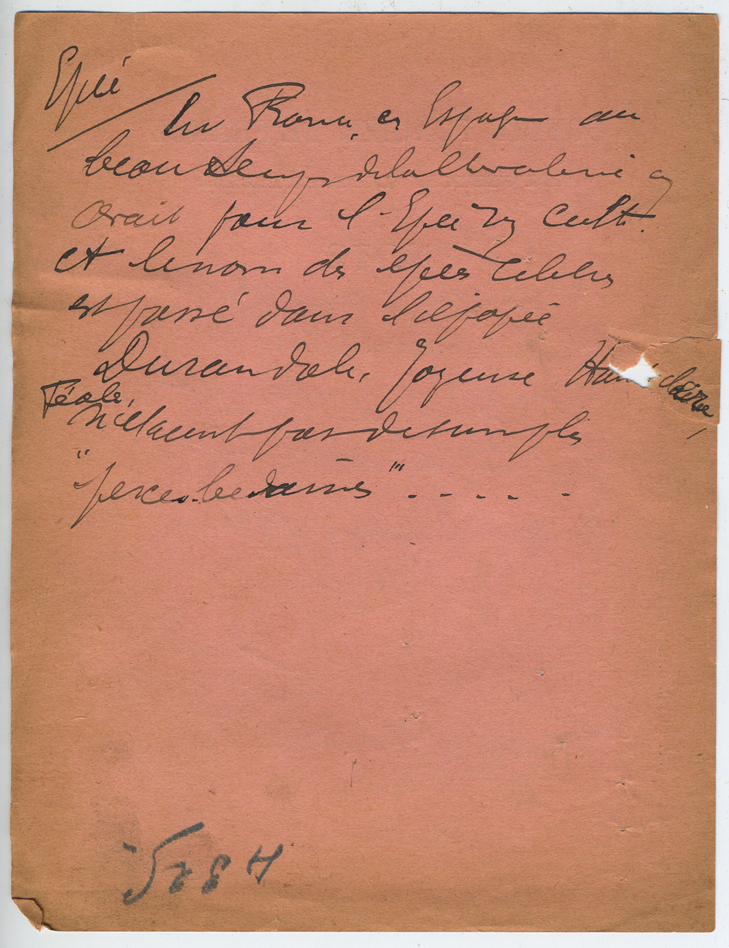 Epée
En France en Espagne au
beau temps de la Chevalerie on
avait pour l'Epée un culte.
et le nom des épées célèbres
est passé dans l'épopée
Durandale, Joyeuse Hauteclaire
n'étaient pas de simples
"perce-bedaines" . . . . .